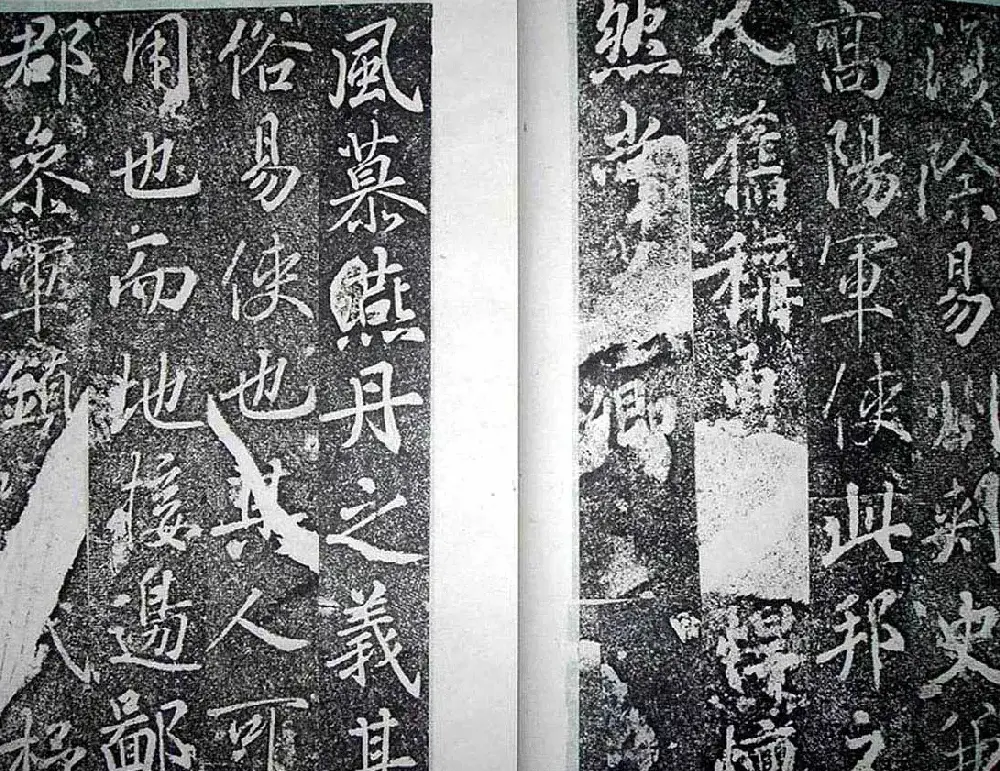 漢除易州刺史兼
高陽軍使此邦之
人舊稱勇悍
然尚卿
風慕燕丹之義其
俗易使也其人可
用也而地接邊鄙
郡參軍鎮